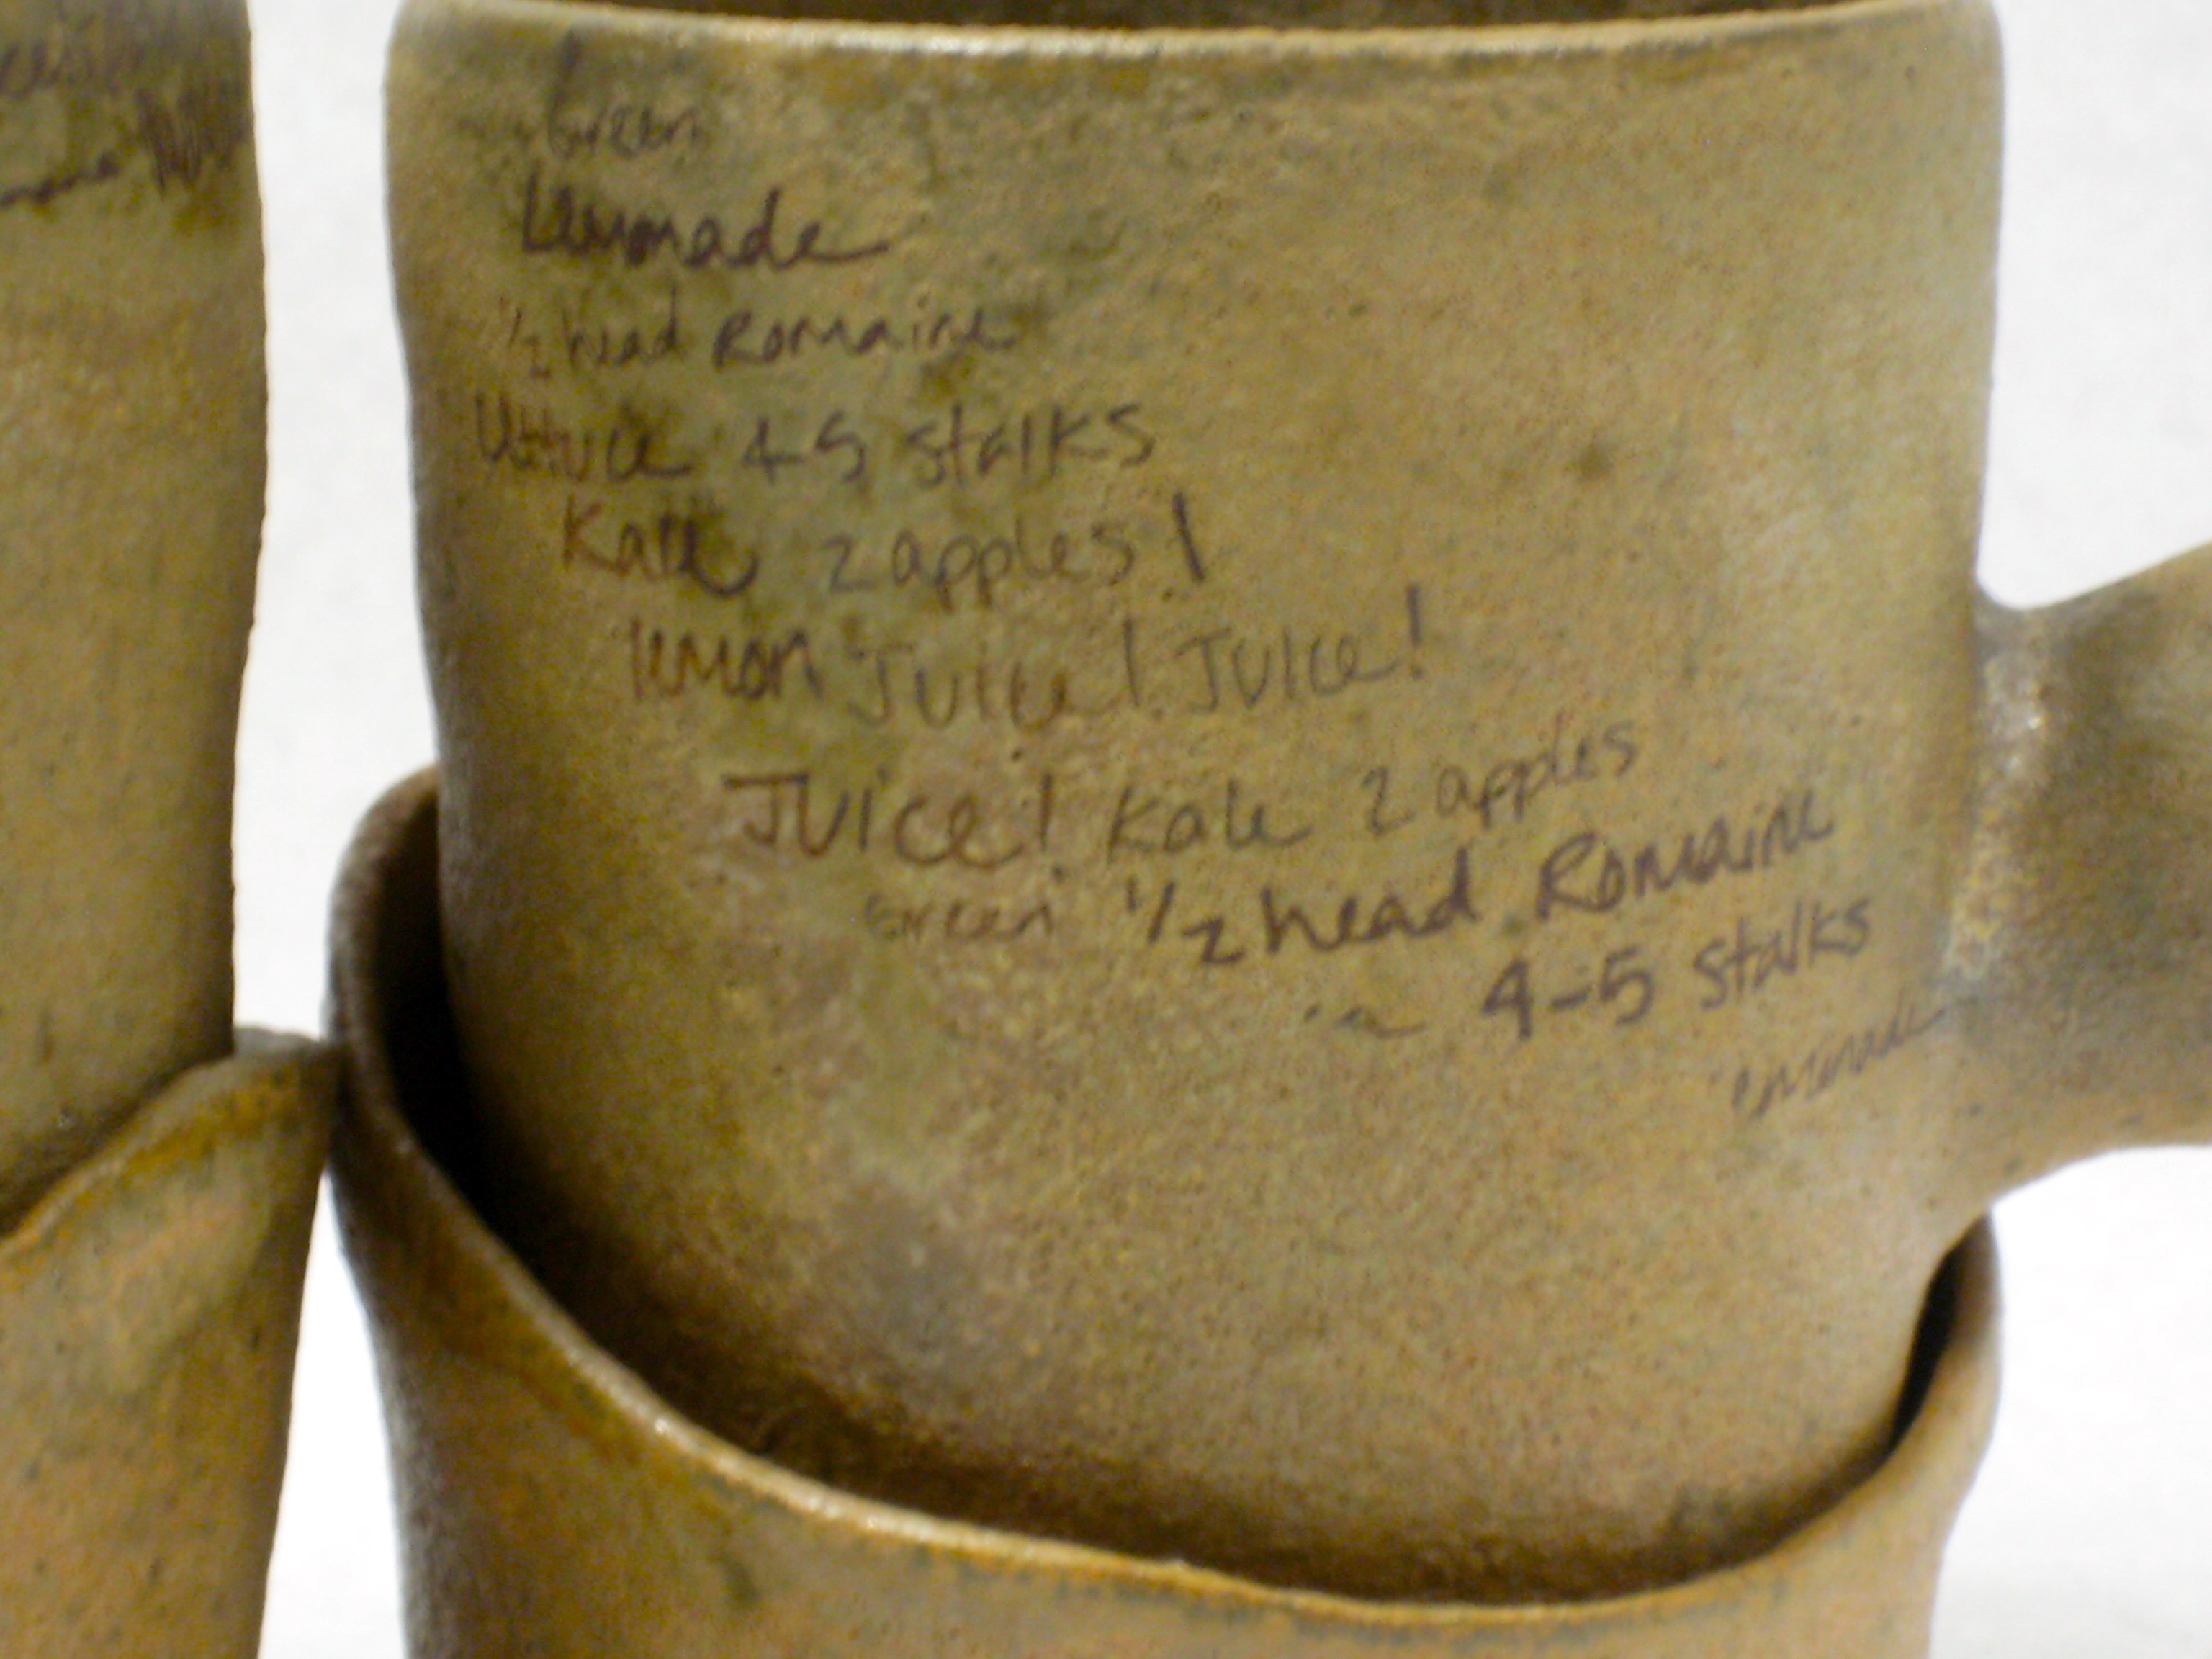 Green
Lemonade
1/2 head Romaine
lettuce 4-5 stalks
Kale 2 apples 1
lemon Juice! Juice!
Juice! Kale 2 apples
Green 1/2 head Romaine
4-5 stalks
lemonade